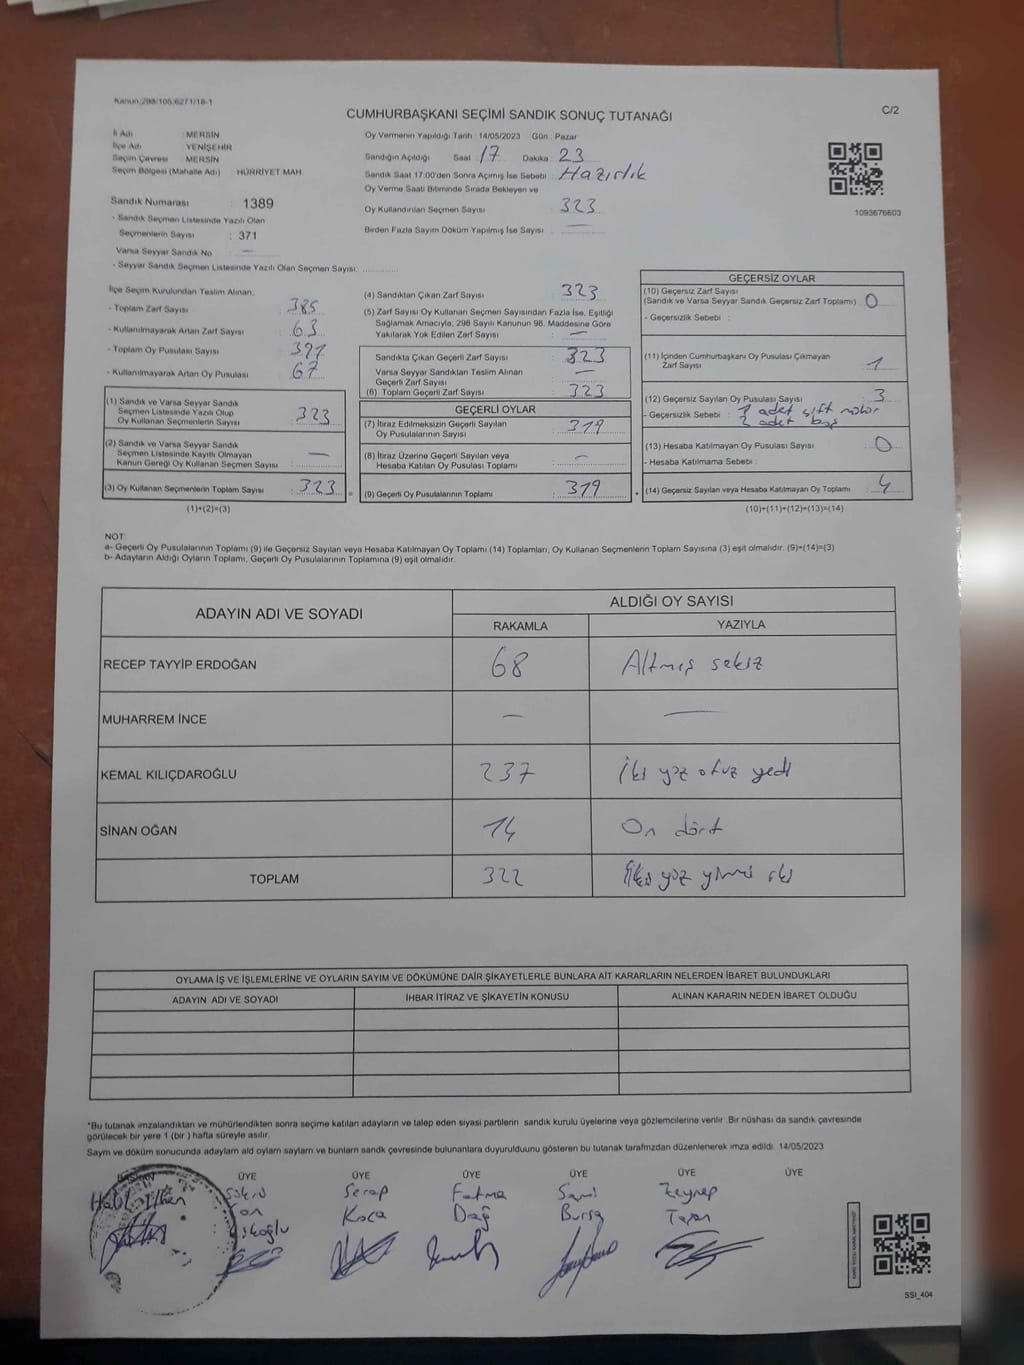 Kanun:298/105;6271/18-1
C/2
CUMHURBAŞKANI SEÇİMİ SANDIK SONUÇ TUTANAĞI
İl Adı : MERSİN
İlçe Adı : YENİŞEHİR
Seçim Çevresi : MERSİN
Seçim Bölgesi (Mahalle Adı) : HÜRRİYET MAH.
Oy Vermenin Yapıldığı Tarih :14/05/2023 Gün : Pazar
Sandığın Açıldığı Saat : 17 Dakika : 23
Sandık Saat 17:00'den Sonra Açımış İse Sebebi : Hazırlık
Oy Verme Saati Bitiminde Sırada Bekleyen ve
Oy Kullandırılan Seçmen Sayısı : 323
Birden Fazla Sayım Döküm Yapılmış İse Sayısı : —
1093676603
Sandık Numarası : 1389
- Sandık Seçmen Listesinde Yazılı Olan
Seçmenlerin Sayısı : 371
Varsa Seyyar Sandık No : —
- Seyyar Sandık Seçmen Listesinde Yazılı Olan Seçmen Sayısı: ............
İlçe Seçim Kurulundan Teslim Alınan;
- Toplam Zarf Sayısı : 385
- Kullanılmayarak Artan Zarf Sayısı : 63
- Toplam Oy Pusulası Sayısı : 391
- Kullanılmayarak Artan Oy Pusulası : 67
(1) Sandık ve Varsa Seyyar Sandık
Seçmen Listesinde Yazılı Olup
Oy Kullanan Seçmenlerin Sayısı : 323
(2) Sandık ve Varsa Seyyar Sandık
Seçmen Listesinde Kayıtlı Olmayan
Kanun Gereği Oy Kullanan Seçmen Sayısı : —
(3) Oy Kullanan Seçmenlerin Toplam Sayısı : 323
(1)+(2)=(3)
(4) Sandıktan Çıkan Zarf Sayısı : 323
(5) Zarf Sayısı Oy Kullanan Seçmen Sayısından Fazla İse, Eşitliği
Sağlamak Amacıyla; 298 Sayılı Kanunun 98. Maddesine Göre
Yakılarak Yok Edilen Zarf Sayısı : —
Sandıkta Çıkan Geçerli Zarf Sayısı : 323
Varsa Seyyar Sandıktan Teslim Alınan
Geçerli Zarf Sayısı : —
(6) Toplam Geçerli Zarf Sayısı : 323
GEÇERLİ OYLAR
(7) İtiraz Edilmeksizin Geçerli Sayılan
Oy Pusulalarının Sayısı : 319
(8) İtiraz Üzerine Geçerli Sayılan veya
Hesaba Katılan Oy Pusulası Toplamı : —
(9) Geçerli Oy Pusulalarının Toplamı : 319
GEÇERSİZ OYLAR
(10) Geçersiz Zarf Sayısı
(Sandık ve Varsa Seyyar Sandık Geçersiz Zarf Toplamı) : 0
- Geçersizlik Sebebi :
(11) İçinden Cumhurbaşkanı Oy Pusulası Çıkmayan
Zarf Sayısı : 1
(12) Geçersiz Sayılan Oy Pusulası Sayısı : 3
- Geçersizlik Sebebi : 1 adet çift mühür
2 adet boş
(13) Hesaba Katılmayan Oy Pusulası Sayısı : 0
- Hesaba Katılmama Sebebi :
(14) Geçersiz Sayılan veya Hesaba Katılmayan Oy Toplamı : 4
(10)+(11)+(12)+(13)=(14)
NOT:
a- Geçerli Oy Pusulalarının Toplamı (9) ile Geçersiz Sayılan veya Hesaba Katılmayan Oy Toplamı (14) Toplamları, Oy Kullanan Seçmenlerin Toplam Sayısına (3) eşit olmalıdır. (9)+(14)=(3)
b- Adayların Aldığı Oyların Toplamı, Geçerli Oy Pusulalarının Toplamına (9) eşit olmalıdır.
ADAYIN ADI VE SOYADI ALDIĞI OY SAYISI
RAKAMLA YAZIYLA
RECEP TAYYİP ERDOĞAN 68 Altmış sekiz
MUHARREM İNCE — —
KEMAL KILIÇDAROĞLU 237 İki yüz otuz yedi
SİNAN OĞAN 14 On dört
TOPLAM 322 yüz iki
OYLAMA İŞ VE İŞLEMLERİNE VE OYLARIN SAYIM VE DÖKÜMÜNE DAİR ŞİKAYETLERLE BUNLARA AİT KARARLARIN NELERDEN İBARET BULUNDUKLARI
ADAYIN ADI VE SOYADI İHBAR İTİRAZ VE ŞİKAYETİN KONUSU ALINAN KARARIN NEDEN İBARET OLDUĞU
*Bu tutanak imzalandıktan ve mühürlendikten sonra seçime katılan adayların ve talep eden siyasi partilerin sandık kurulu üyelerine veya gözlemcilerine verilir. Bir nüshası da sandık çevresinde
görülecek bir yere 1 (bir ) hafta süreyle asılır.
Sayım ve döküm sonucunda adayların aldı oyların sayların ve bunların sandk çevresinde bulunanlara duyurulduunu gösteren bu tutanak tarafmzdan düzenlenerek imza edildi. 14/05/2023
BAŞKAN ÜYE ÜYE ÜYE ÜYE ÜYE ÜYE
Serap Fatma Sami Zeynep
Koca Dağ Bursa
SSİ_404